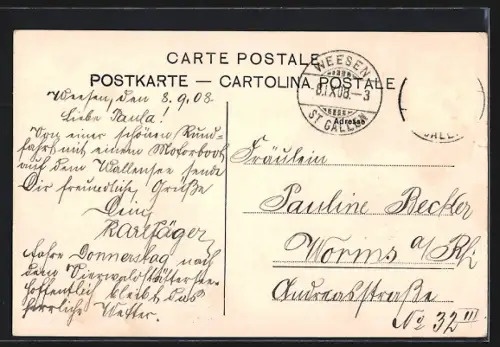 CARTE POSTALE
POSTKARTE — CARTOLINA POSTALE
WEESEN
8.IX.08.–3
ST GALLEN
GALLEN
Adresse
Weesen, den 8.9.08.
Liebe Paula!
Von einer schönen Rund-
fahrt mit einem Motorboot
auf dem Wallensee sende
Dir freundliche Grüße
Dein
Karl Jäger
Fahre Donnerstag nach
dem Vierwaldstättersee.
Hoffentlich bleibt das
herrliche Wetter.
Fräulein
Pauline Becker
Worms a/Rh.
Andreasstraße
No 32 III